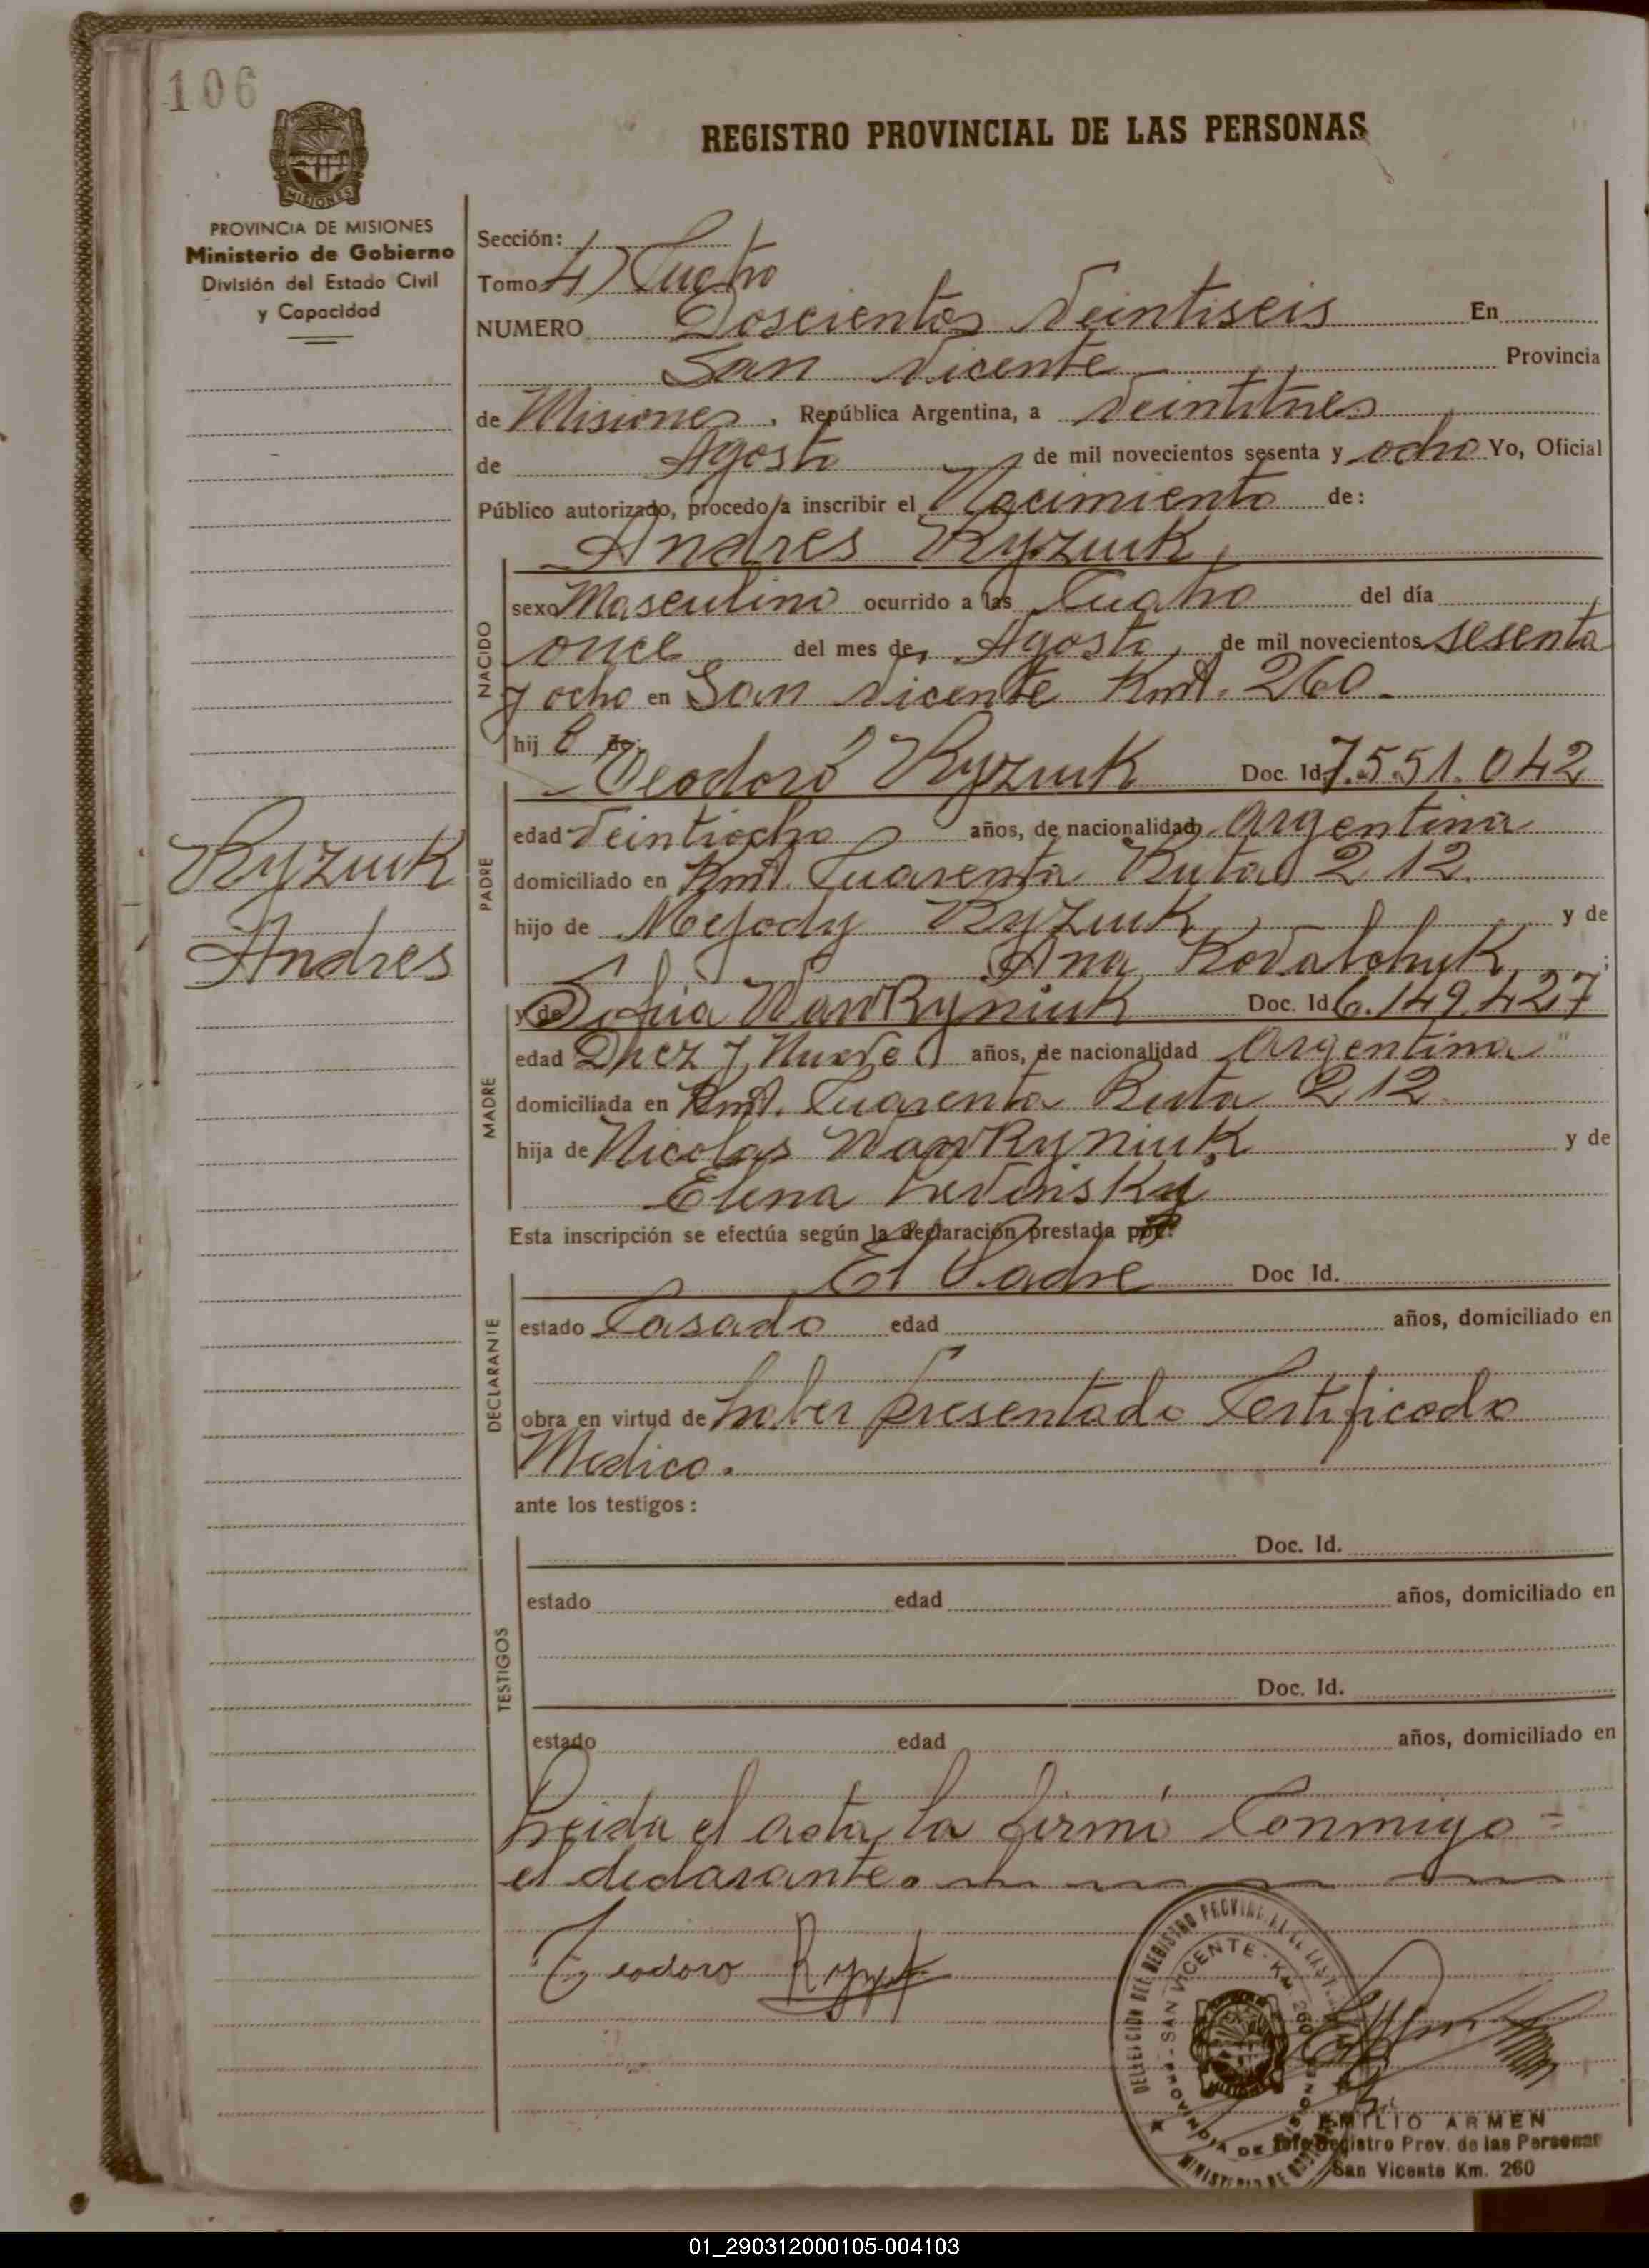 106
REGISTRO PROVINCIAL DE LAS PERSONAS
MISIONES
PROVINCIA DE MISIONES
Ministerio de Gobierno
División del Estado Civil
y Capacidad
Sección:
Tomo 4) Cuatro
NUMERO Doscientos Veintiseis En
San Vicente Provincia
de Misiones, República Argentina, a Veintitres
de Agosto de mil novecientos sesenta y ocho Yo, Oficial
Público autorizado, procedo a inscribir el Nacimiento de:
Andres Ryzuk
NACIDO
sexo Masculino ocurrido a las Cuatro del día
once del mes de Agosto de mil novecientos sesenta
y ocho en San Vicente Kmt. 260.
hij o de:
Teodoro Ryzuk Doc. Id. 7.551.042
PADRE
edad Veintiocho años, de nacionalidad Argentina
domiciliado en Kmt. Cuarenta Ruta 212.
hijo de Mefody Ryzuk y de
Ana Kovalchuk ;
Ryzuk
Andres
y de Sofia Wawryniuk Doc. Id. 6.149.427
MADRE
edad Diez y Nueve años, de nacionalidad Argentina
domiciliada en Kmt. Cuarenta Ruta 212.
hija de Nicolas Wawryniuk y de
Elena
Esta inscripción se efectúa según la declaración prestada por:
El Padre Doc Id.
DECLARANTE
estado Casado edad años, domiciliado en
obra en virtud de haber presentado Certificado
Medico.
ante los testigos:
TESTIGOS
Doc. Id.
estado edad años, domiciliado en
Doc. Id.
estado edad años, domiciliado en
Leida el acta, la firmó Conmigo =
el declarante.
Teodoro
SAN VICENTE - KM. 260
PROVINCIA DE MISIONES
EMILIO ARMEN
Jefe Registro Prov. de las Personas
San Vicente Km. 260
01_290312000105-004103